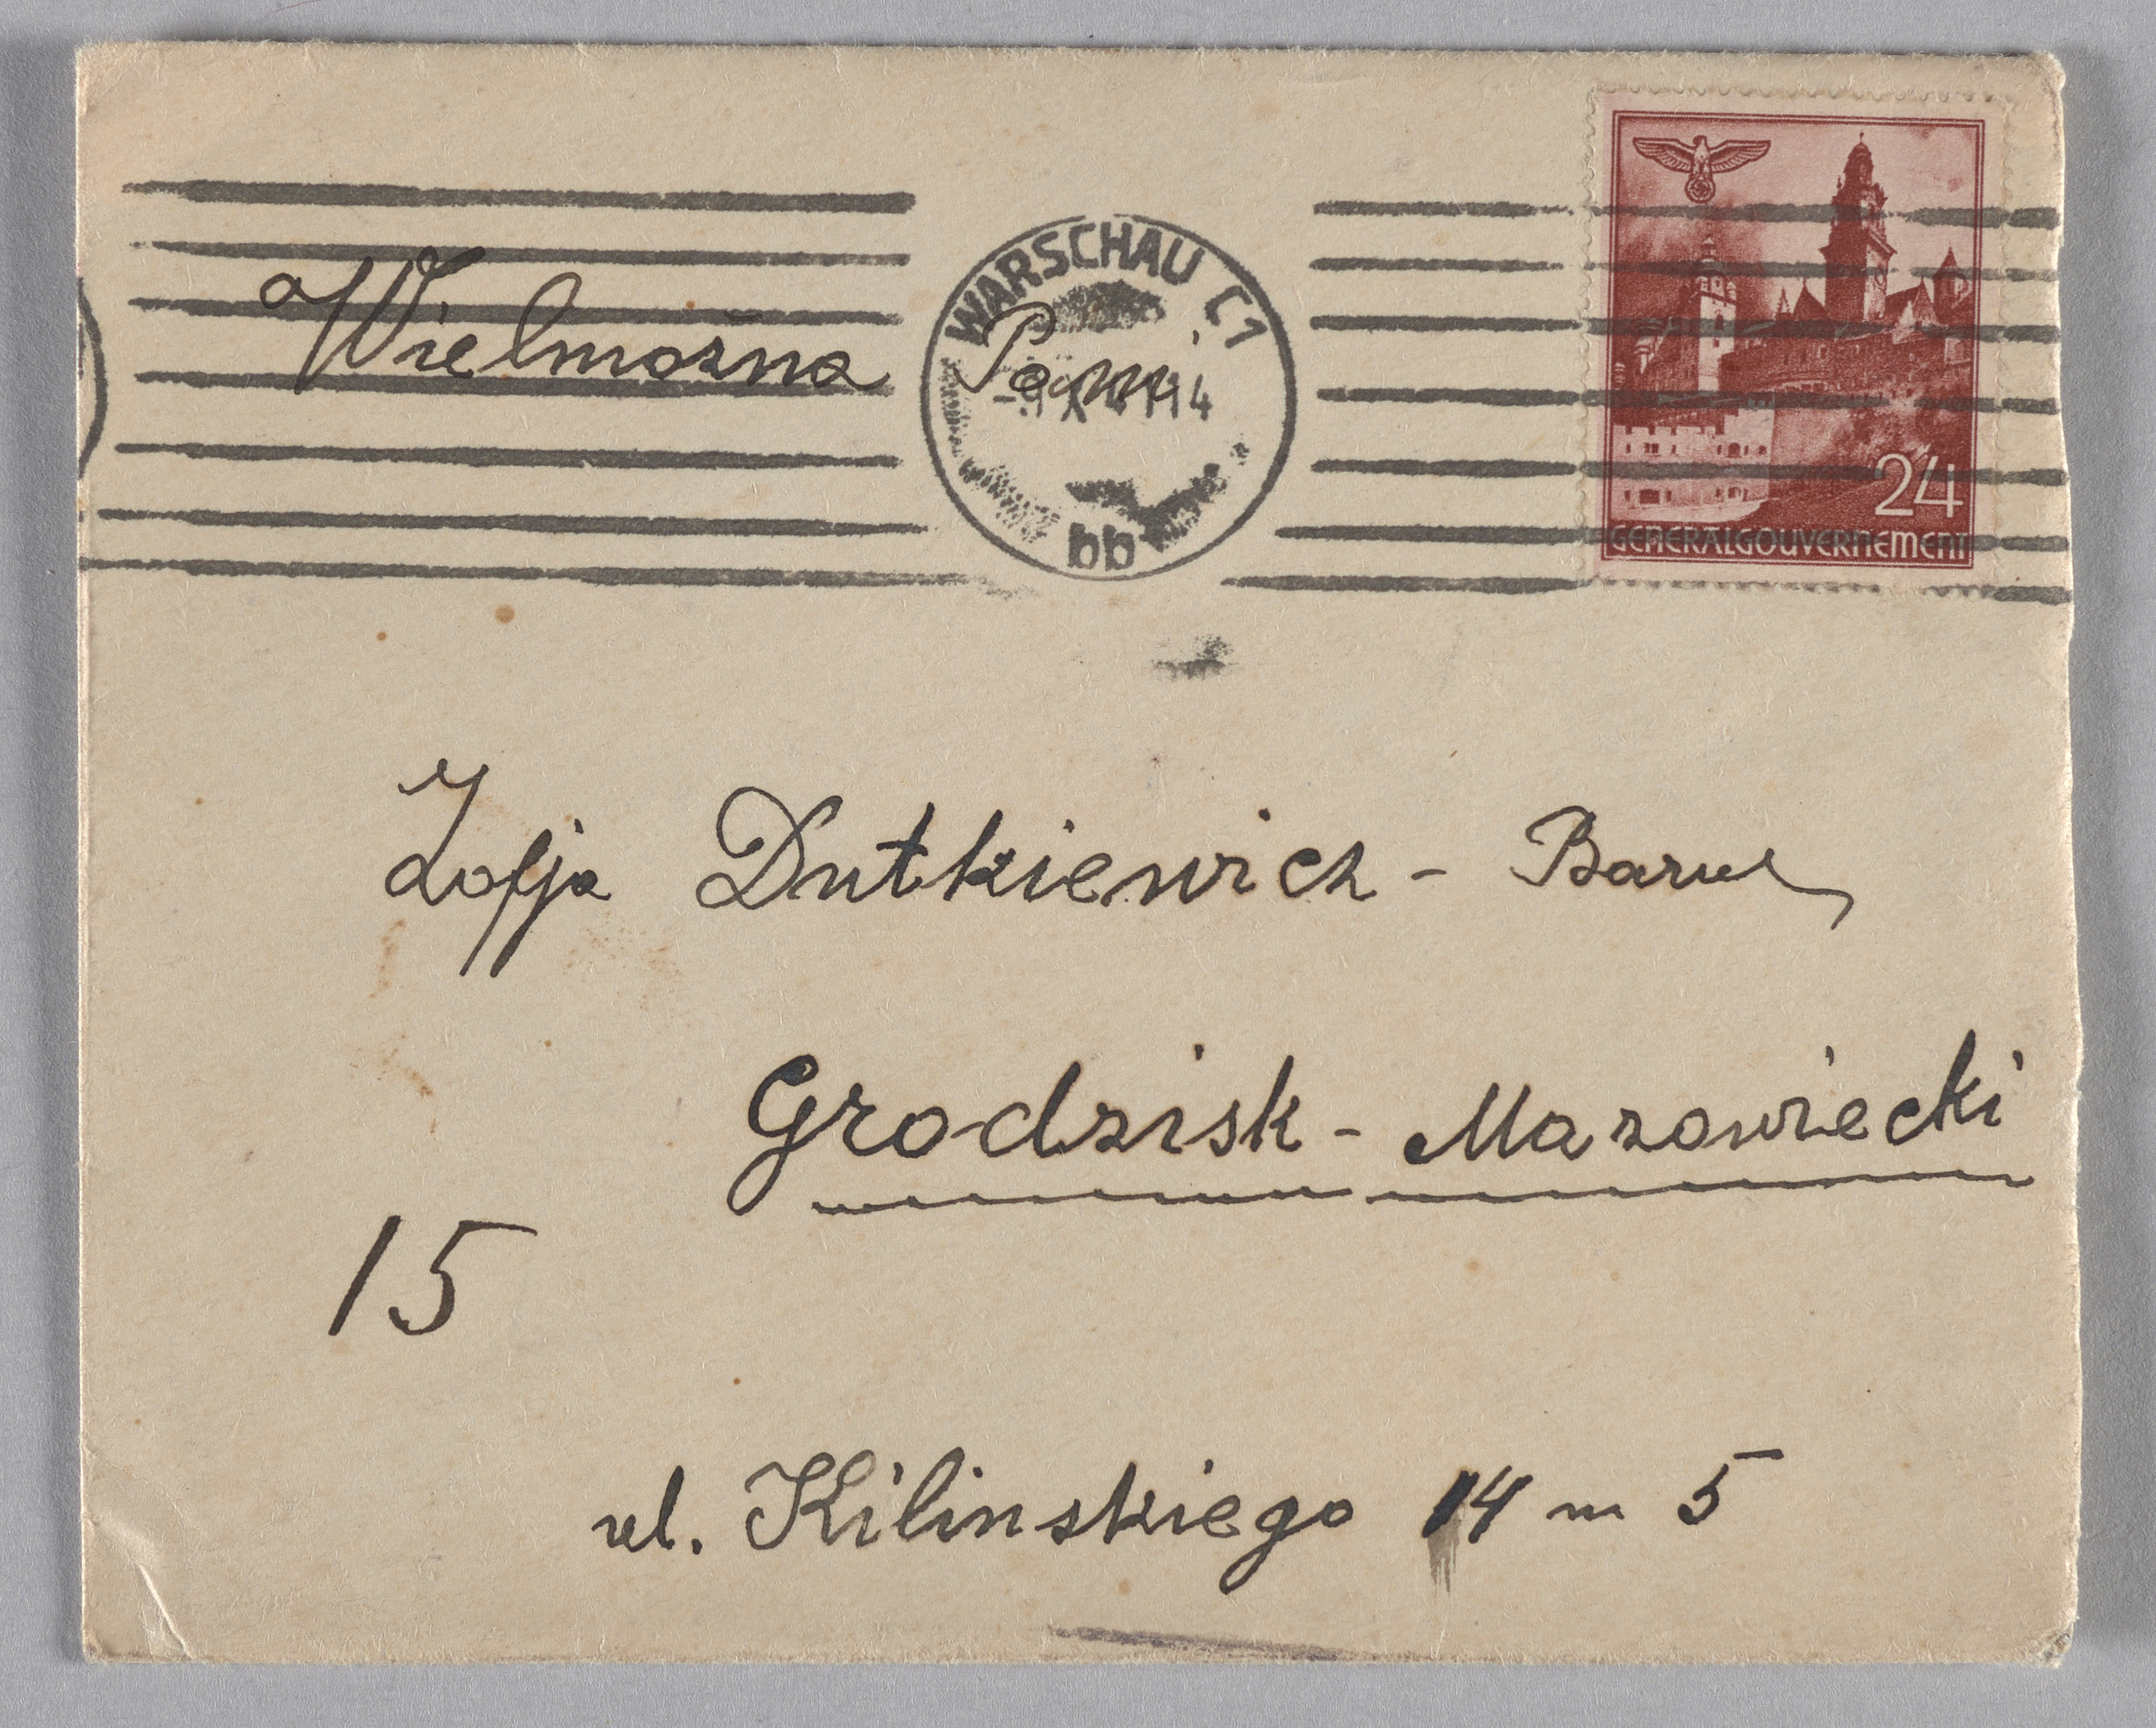 WARSCHAU C1
Wielmożna Pani
bb
24
GENERALGOUVERNEMENT
Zofja Dutkiewicz -
Grodzisk - Mazowiecki
15
ul. Kilinskiego 14 m 5